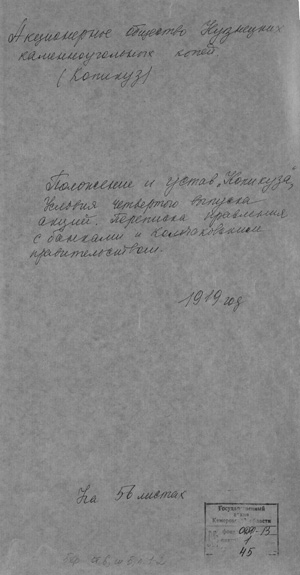 Акционерное общество Кузнецких
каменноугольных копей
(Копикуз)
Положение и устав "Копикуза",
Условия четвертого выпуска
акций. Переписка правления
с банками и колчаковским
правительством.
1919 год
На 56 листах
Государственный
архив
Кемеровской области
фонд
45